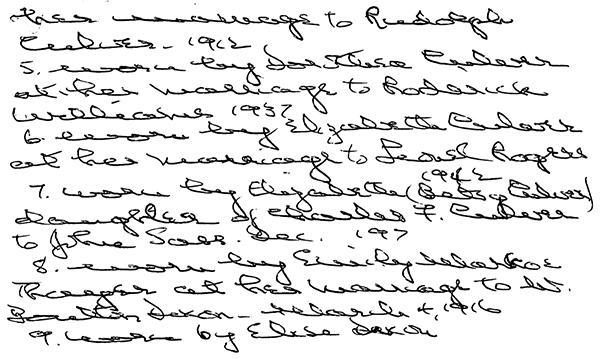 her marriage to Rudolph
1912
5. worn by Dorothea
at her marriage to Roderick
Williams 1937
6. worn by Elizabeth
at her marriage to Rogers
1942
7. worn by Elizabeth (Betsy
daughter of Charles F.
to John Sass. Dec. 197
8. worn by Emily
at her marriage to W.
Dixon - March 4, 1916
9. worn by Elise Dixon